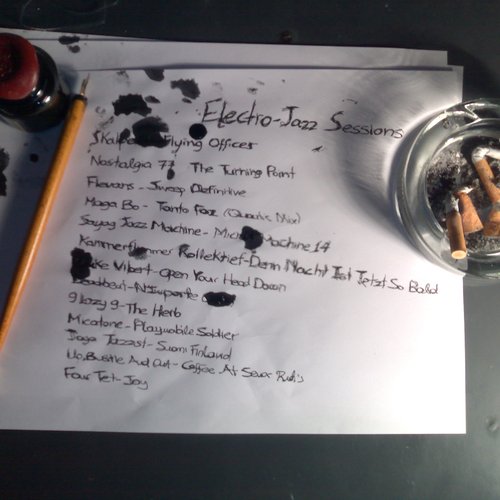 Electro-Jazz Sessions
Flying Officer
Nostalgia 77 The Turning Point
Flevans - Sweep Definitive
Maga Bo - Tanto Faz (Quantic Mix)
Sayag Jazz Machine - Machine 14
Kammerflimmer Kollektief - Denn Nacht Ist Jetzt So Bald
Luke Vibert - Open Your Head Down
Deadbeat -
9 Lazy 9 - The Herb
Micatone - Playmobile Soldier
Jaga Jazzist - Suomi Finland
Up, Bustle And Out - Coffee At Senor Rudi's
Four Tet - Joy